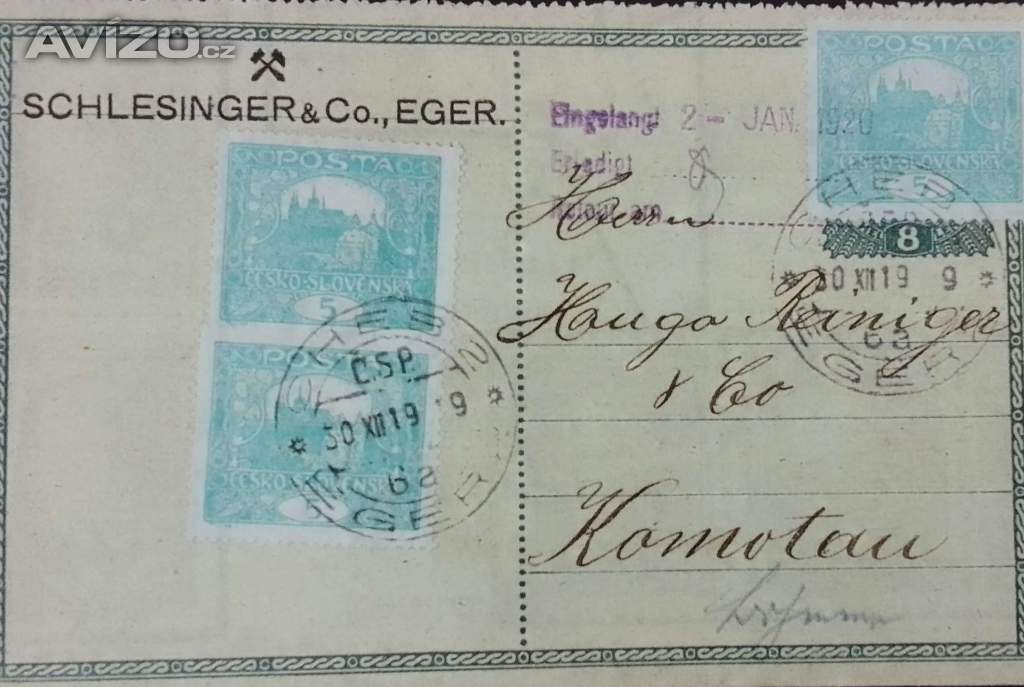 Avízo.cz
SCHLESINGER & Co., EGER.
POSTA
ČESKO-SLOVENSKÁ
5
POSTA
ČESKO-SLOVENSKÁ
CHEB 2
Č.S.P.
* 30 XII 19 9 *
6a
EGER
Eingelangt 2 - JAN. 1920
Erledigt
POSTA
ČESKO-SLOVENSKÁ
8
CHEB
* 30 XII 19 9 *
6a
EGER
Herrn
Hugo Reiniger
& Co
Komotau